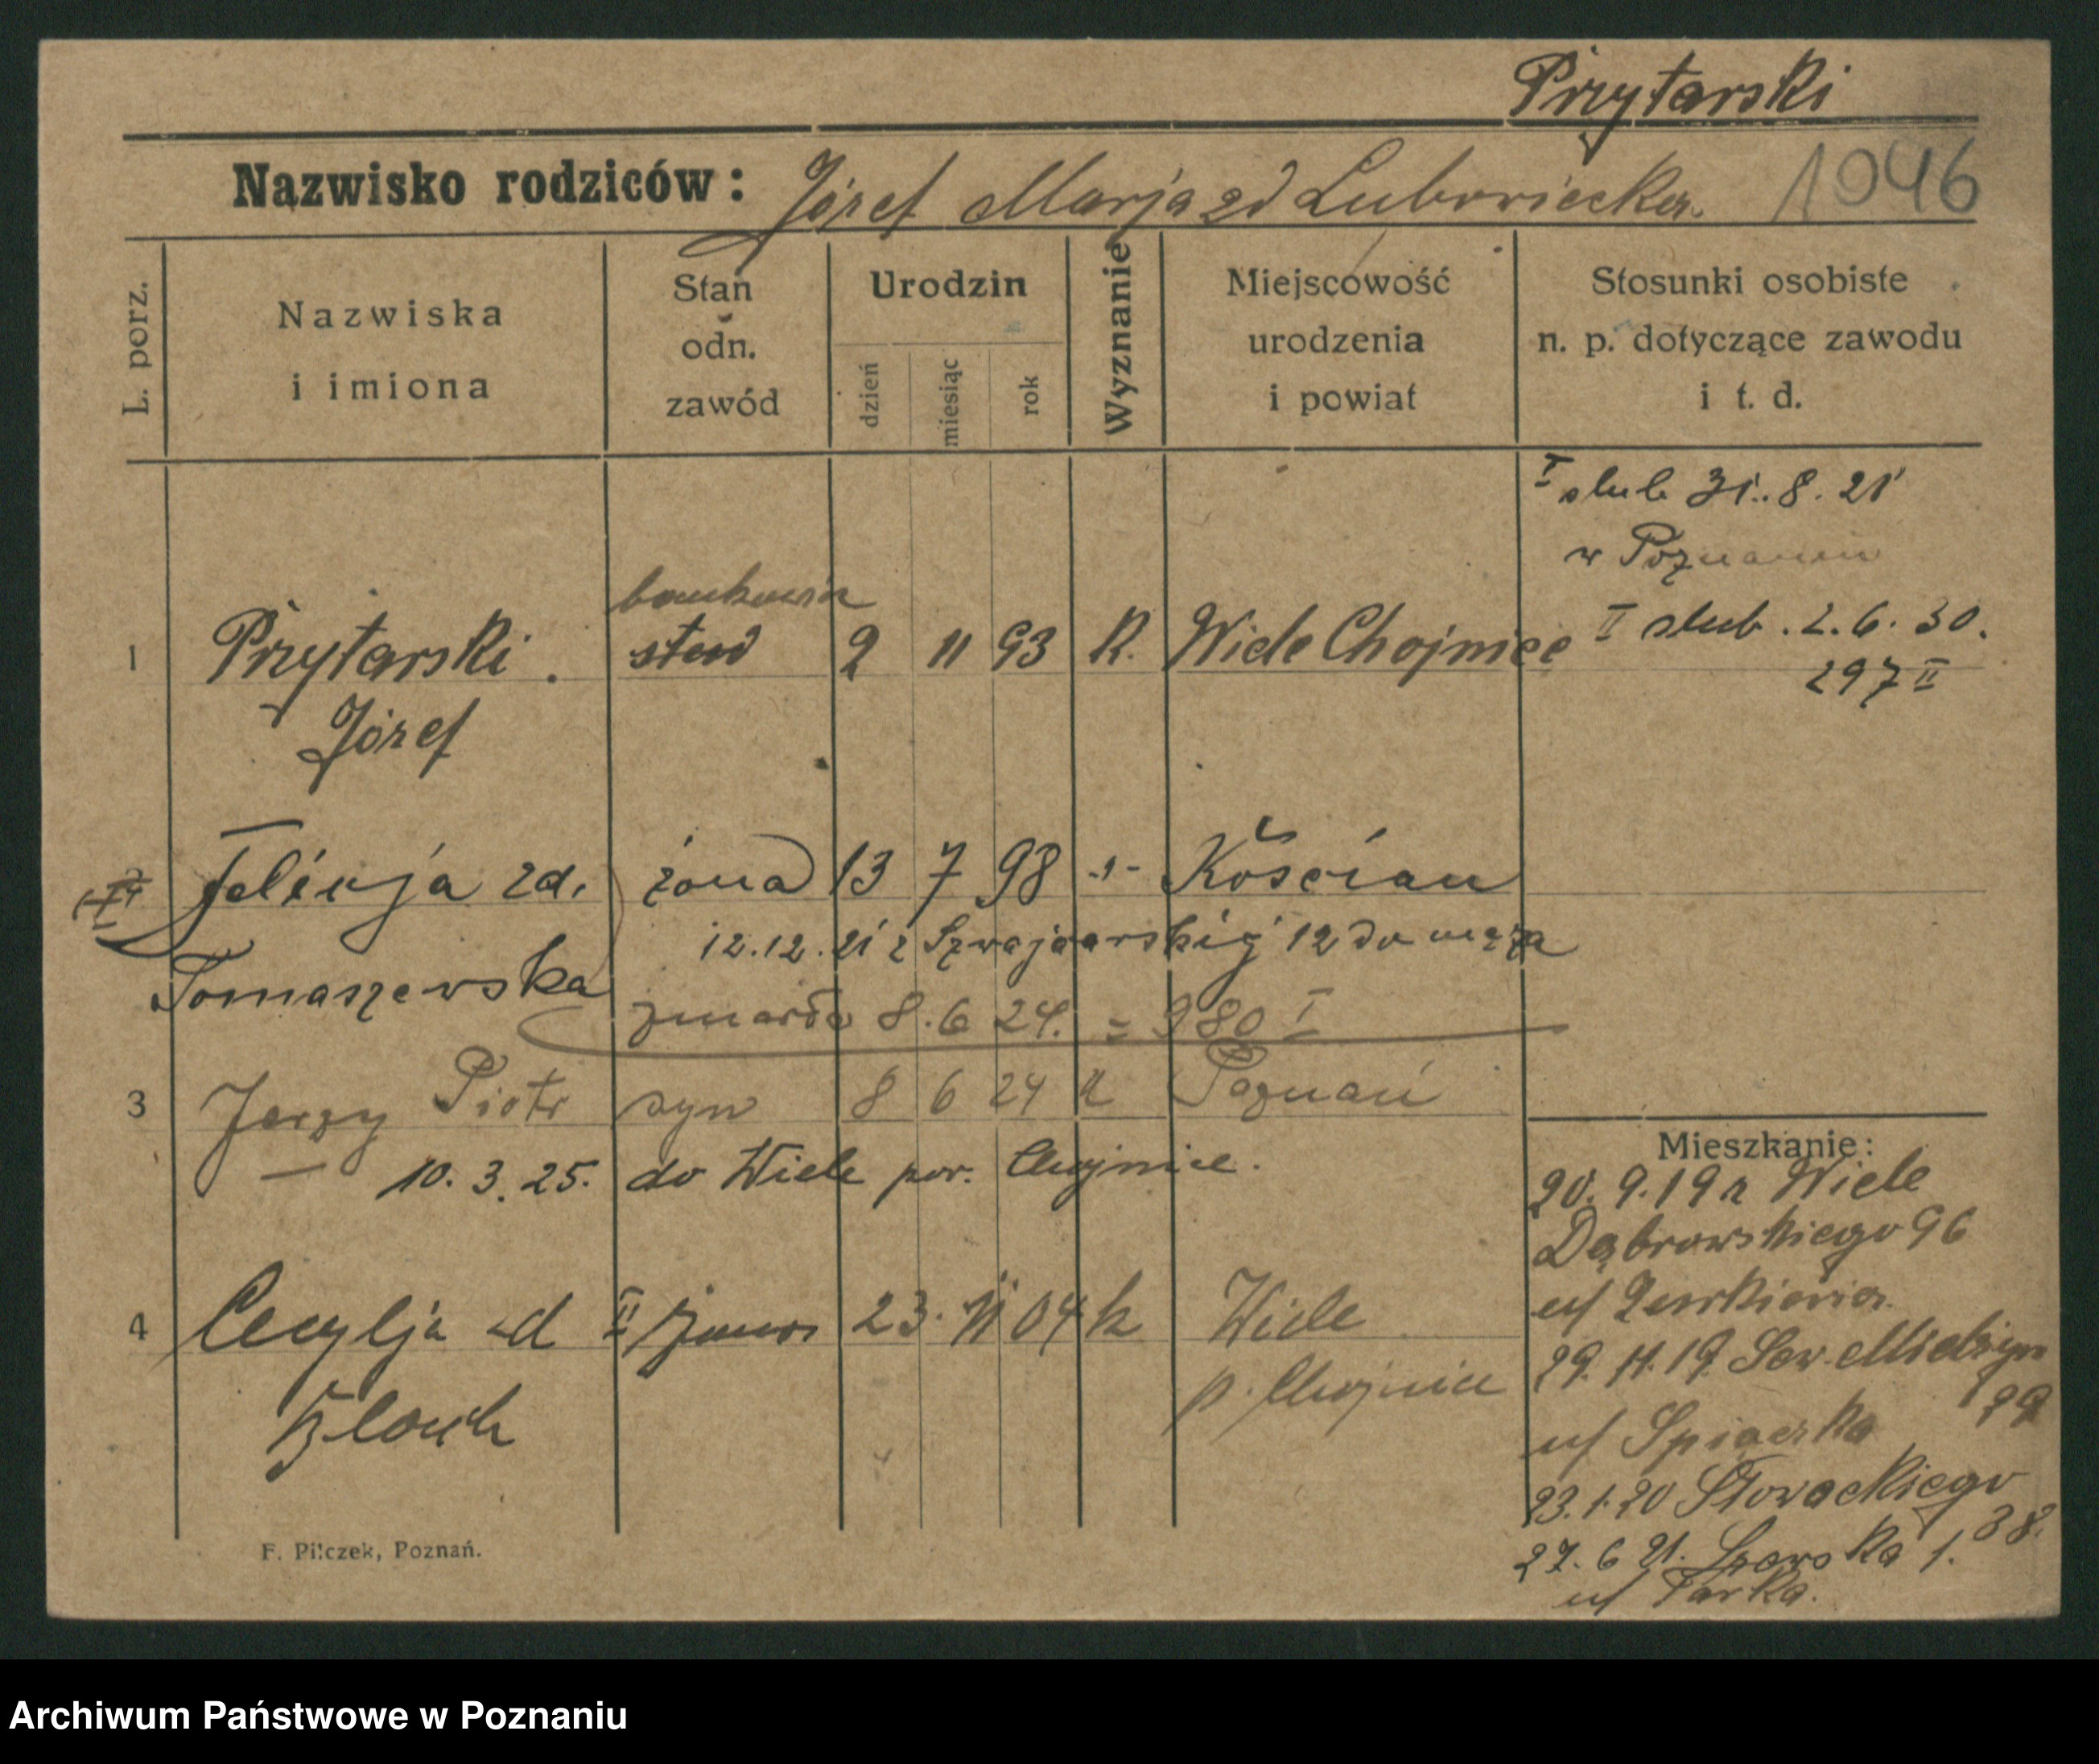 Przytarski
Nazwisko rodziców: Józef Marja zd Lubowiecka 1046
L. porz.
Nazwiska
i imiona
Stan
odn.
zawód
Urodzin
dzień
miesiąc
rok
Wyznanie
Miejscowość
urodzenia
i powiat
Stosunki osobiste
n. p. dotyczące zawodu
i t. d.
I slub 31.8.21
w Poznaniu
II slub. 2.6.30.
297 II
1 Przytarski. stud 2 11 93 K. Wiele Chojnice
Józef
2 Felicja zd. żona 13 7 98 -"- Kościan
12.12.21 z Szwajcarskiej 12 do męża
Tomaszewska
zmarła 8.6 24. = 980 I
3 Jerzy Piotr syn 8 6 24 K Poznań
10.3.25. do Wiele pow. Chojnice.
4 Cecylja zd II żona 23. 11 04 k Wiele
p. Chojnice
Mieszkanie:
20.9.19 z Wiele
Dąbrowskiego 96
u/
29.11.19. Sew. Mielżyn
22
u/ Spiączka
23.1.20 Słowackiego
38.
27.6 21. 1.
u/ Parka.
F. Pilczek, Poznań.
Archiwum Państwowe w Poznaniu